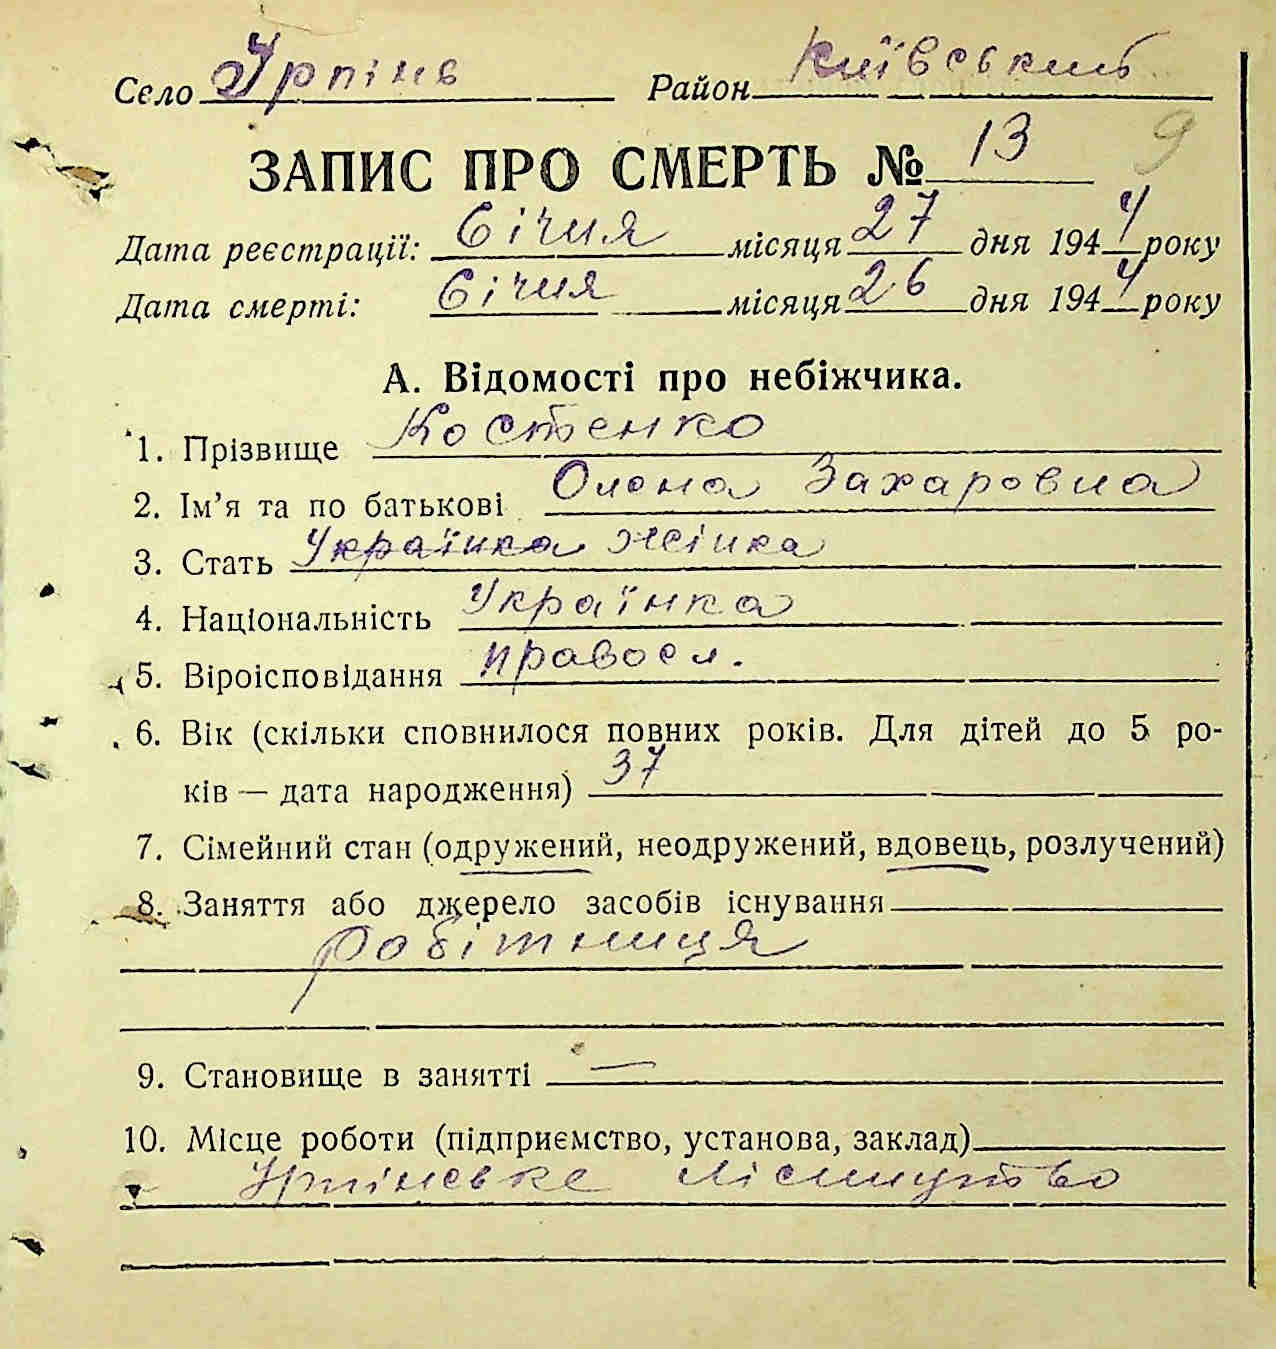 Село Ірпінь Район Київський
ЗАПИС ПРО СМЕРТЬ № 13 9
Дата реєстрації: Січня місяця 27 дня 1944 року
Дата смерті: Січня місяця 26 дня 1944 року
А. Відомості про небіжчика.
1. Прізвище Костенко
2. Ім'я та по батькові Олена Захаровна
3. Стать Українка жінка
4. Національність Українка
5. Віроісповідання правосл.
6. Вік (скільки сповнилося повних років. Для дітей до 5 ро-
ків — дата народження) 37
7. Сімейний стан (одружений, неодружений, вдовець, розлучений)
8. Заняття або джерело засобів існування
робітниця
9. Становище в занятті —
10. Місце роботи (підприємство, установа, заклад)
Ірпінське лісництво